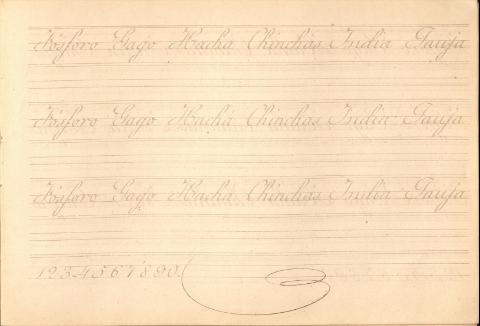 Fósforo Gago Hacha Chinchas India Jauja
Fósforo Gago Hacha Chinchas India Jauja
Fósforo Gago Hacha Chinchas India Jauja
1234567890.